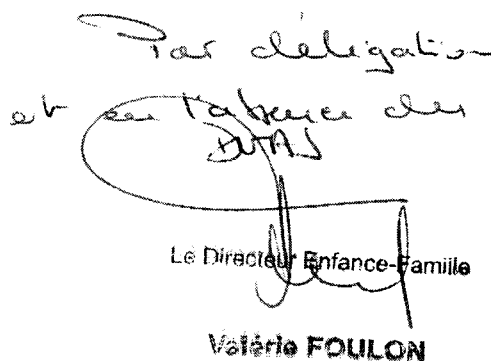 Par délégation
et en l'absence du
Le Directeur Enfance-Famille
Valérie FOULON